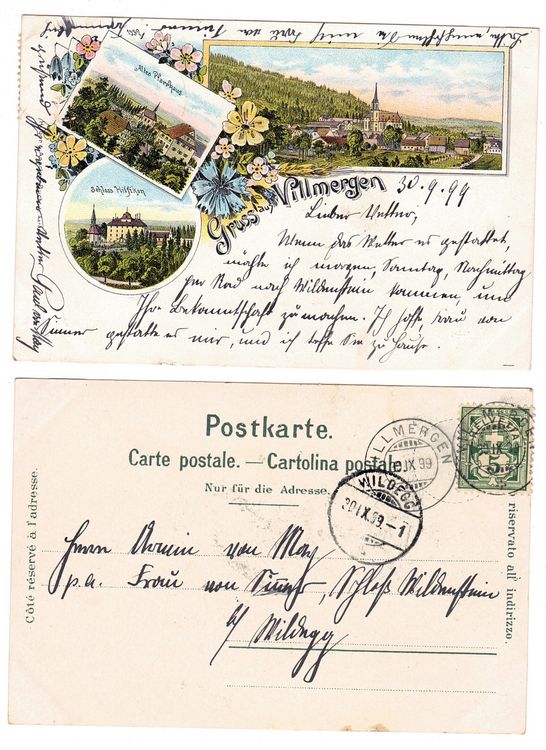 Altes Pfarrhaus
Schloss Hilfikon
Gruss aus Villmergen
30.9.99
Lieber Vetter,
Wenn das Wetter es gestattet,
möchte ich morgen, Sonntag, Nachmittag
per Rad nach Wildenstein kommen, um
Ihre Bekanntschaft zu machen. Ich hoffe, Frau von
Sinner gestatte es mir, und ich treffe Sie zu Hause.
Postkarte.
Carte postale. — Cartolina postale.
Nur für die Adresse.
Côté réservé à l'adresse.
riservato all' indirizzo.
VILLMERGEN
IX.99
HELVETIA
5
WILDEGG
30.IX.99.-1
Herrn Armin von May
p.a. Frau von Sinner, Schloß Wildenstein
b/ Wildegg